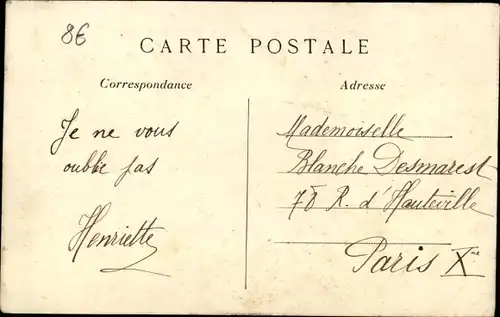 8€
CARTE POSTALE
Correspondance
Adresse
Je ne vous
oublie pas
Henriette
Mademoiselle
Blanche Desmarest
R. d'Hauteville
Paris Xme